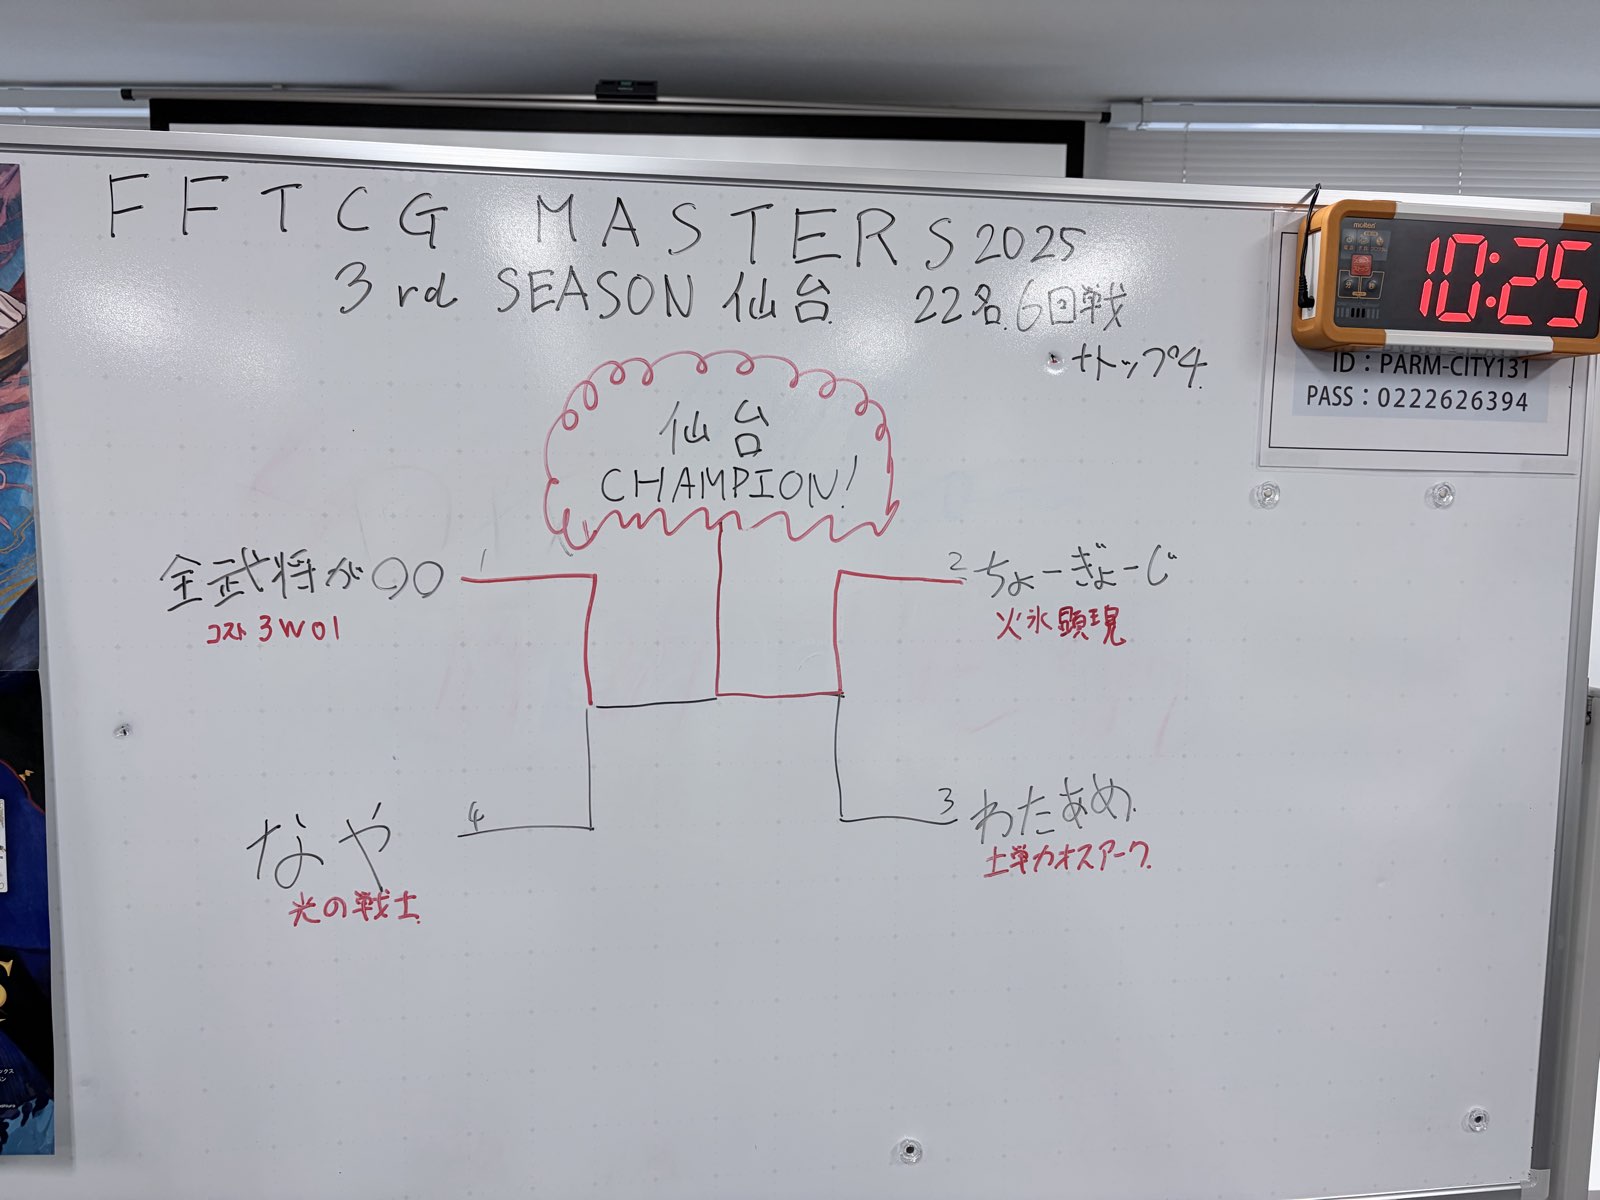 FFTCG MASTERS 2025
3rd SEASON 仙台 22名 6回戦
+トップ4
molten
10:25
ID：PARM-CITY131
PASS：0222626394
仙台
CHAMPION!
1
全武将が〇〇
コスト3WOl
2
ちょーぎょーじ
火氷顕現
4
なや
光の戦士
3
わたあめ
土単カオスアーク